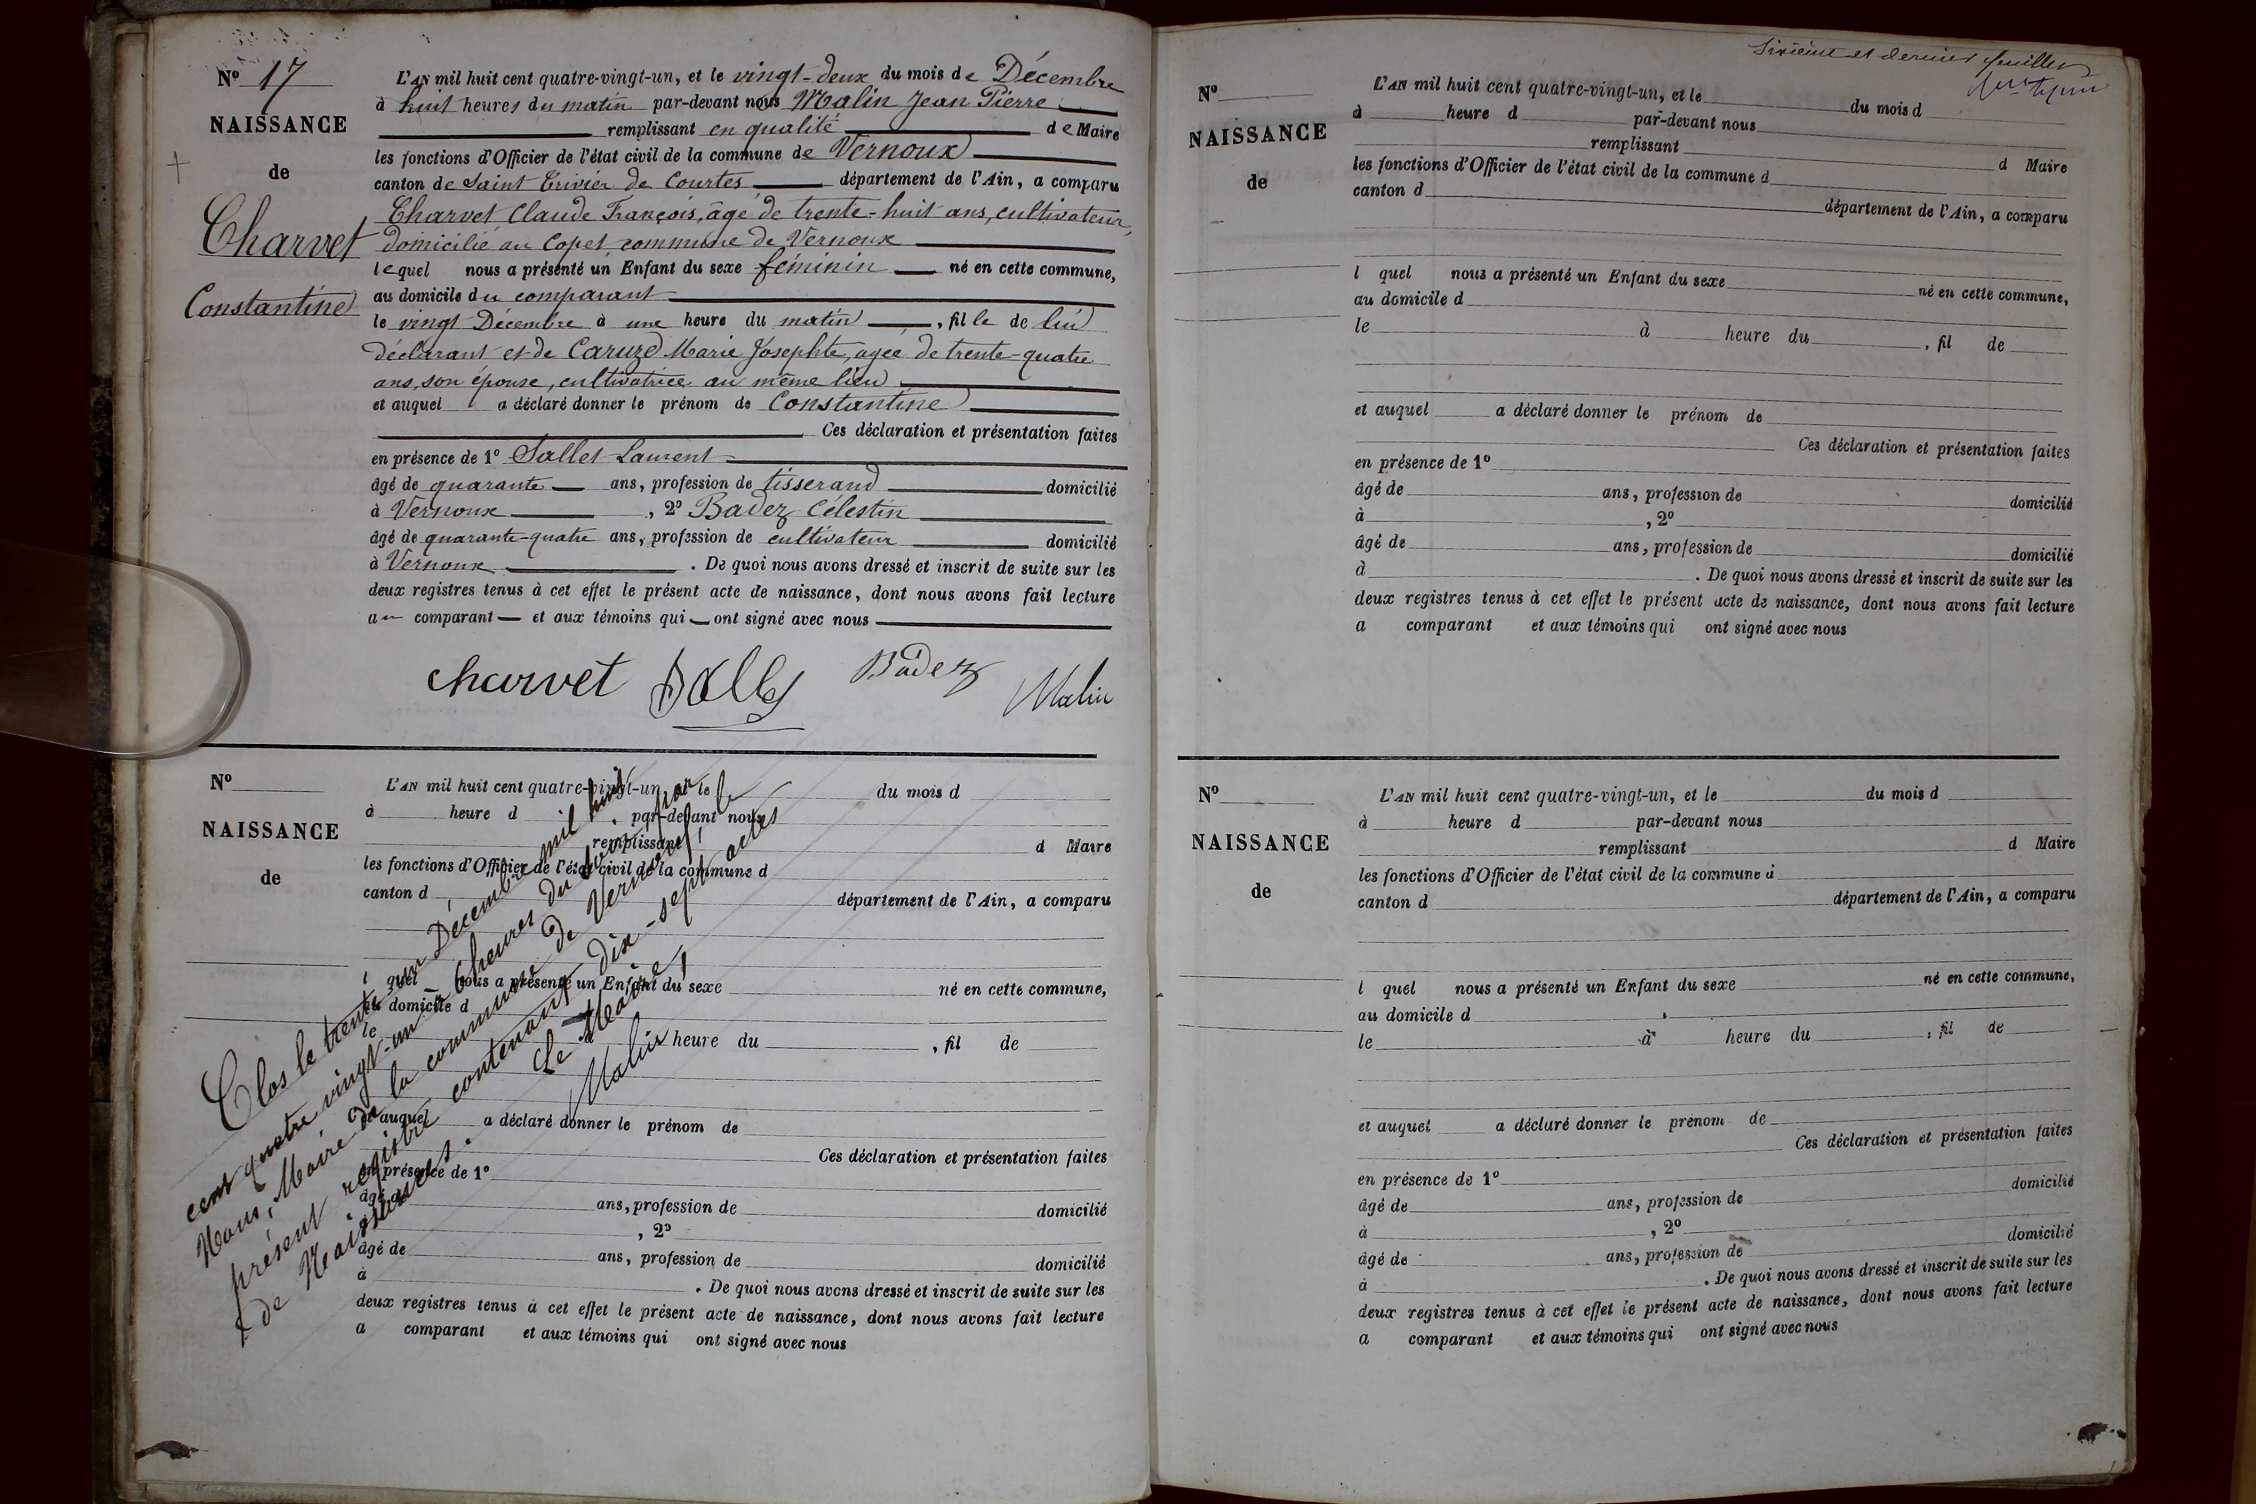 N° 17
NAISSANCE
de
Charvet
Constantine
L'AN mil huit cent quatre-vingt-un, et le vingt-deux du mois de Décembre
à huit heures du matin par-devant nous Malin Jean Pierre
remplissant en qualité de Maire
les fonctions d'Officier de l'état civil de la commune de Vernoux
canton de Saint Trivier de Courtes département de l'Ain, a comparu
Charvet Claude François, âgé de trente-huit ans, cultivateur,
domicilié au Copet commune de Vernoux
lequel nous a présenté un Enfant du sexe féminin né en cette commune,
au domicile du comparant
le vingt Décembre à une heure du matin, fille de lui
déclarant et de Caruze Marie Josephte, agée de trente-quatre
ans, son épouse, cultivatrice au même lieu
et auquel a déclaré donner le prénom de Constantine
Ces déclaration et présentation faites
en présence de 1° Sallet Laurent
âgé de quarante ans, profession de tisserand domicilié
à Vernoux, 2° Badez Célestin
âgé de quarante-quatre ans, profession de cultivateur domicilié
à Vernoux. De quoi nous avons dressé et inscrit de suite sur les
deux registres tenus à cet effet le présent acte de naissance, dont nous avons fait lecture
au comparant et aux témoins qui ont signé avec nous
charvet Badez Malin
N°
NAISSANCE
de
L'AN mil huit cent quatre-vingt-un, et le du mois d
à heure d par-devant nous
remplissant d Maire
les fonctions d'Officier de l'état civil de la commune d
canton d département de l'Ain, a comparu
l quel nous a présenté un Enfant du sexe né en cette commune,
au domicile d
le à heure du , fil de
et auquel a déclaré donner le prénom de
Ces déclaration et présentation faites
en présence de 1°
âgé de ans, profession de domicilié
à , 2°
âgé de ans, profession de domicilié
à . De quoi nous avons dressé et inscrit de suite sur les
deux registres tenus à cet effet le présent acte de naissance, dont nous avons fait lecture
a comparant et aux témoins qui ont signé avec nous
Clos le trente un Décembre mil huit
cent quatre vingt-un à 6 heures du soir par
Nous, Maire de la commune de Vernoux, le
présent registre contenant dix-sept actes
de Naissances.
Le Maire,
Malin
Sixième et dernier feuillet
N°
NAISSANCE
de
L'AN mil huit cent quatre-vingt-un, et le du mois d
à heure d par-devant nous
remplissant d Maire
les fonctions d'Officier de l'état civil de la commune d
canton d département de l'Ain, a comparu
l quel nous a présenté un Enfant du sexe né en cette commune,
au domicile d
le à heure du , fil de
et auquel a déclaré donner le prénom de
Ces déclaration et présentation faites
en présence de 1°
âgé de ans, profession de domicilié
à , 2°
âgé de ans, profession de domicilié
à . De quoi nous avons dressé et inscrit de suite sur les
deux registres tenus à cet effet le présent acte de naissance, dont nous avons fait lecture
a comparant et aux témoins qui ont signé avec nous
N°
NAISSANCE
de
L'AN mil huit cent quatre-vingt-un, et le du mois d
à heure d par-devant nous
remplissant d Maire
les fonctions d'Officier de l'état civil de la commune d
canton d département de l'Ain, a comparu
l quel nous a présenté un Enfant du sexe né en cette commune,
au domicile d
le à heure du , fil de
et auquel a déclaré donner le prénom de
Ces déclaration et présentation faites
en présence de 1°
âgé de ans, profession de domicilié
à , 2°
âgé de ans, profession de domicilié
à . De quoi nous avons dressé et inscrit de suite sur les
deux registres tenus à cet effet le présent acte de naissance, dont nous avons fait lecture
a comparant et aux témoins qui ont signé avec nous